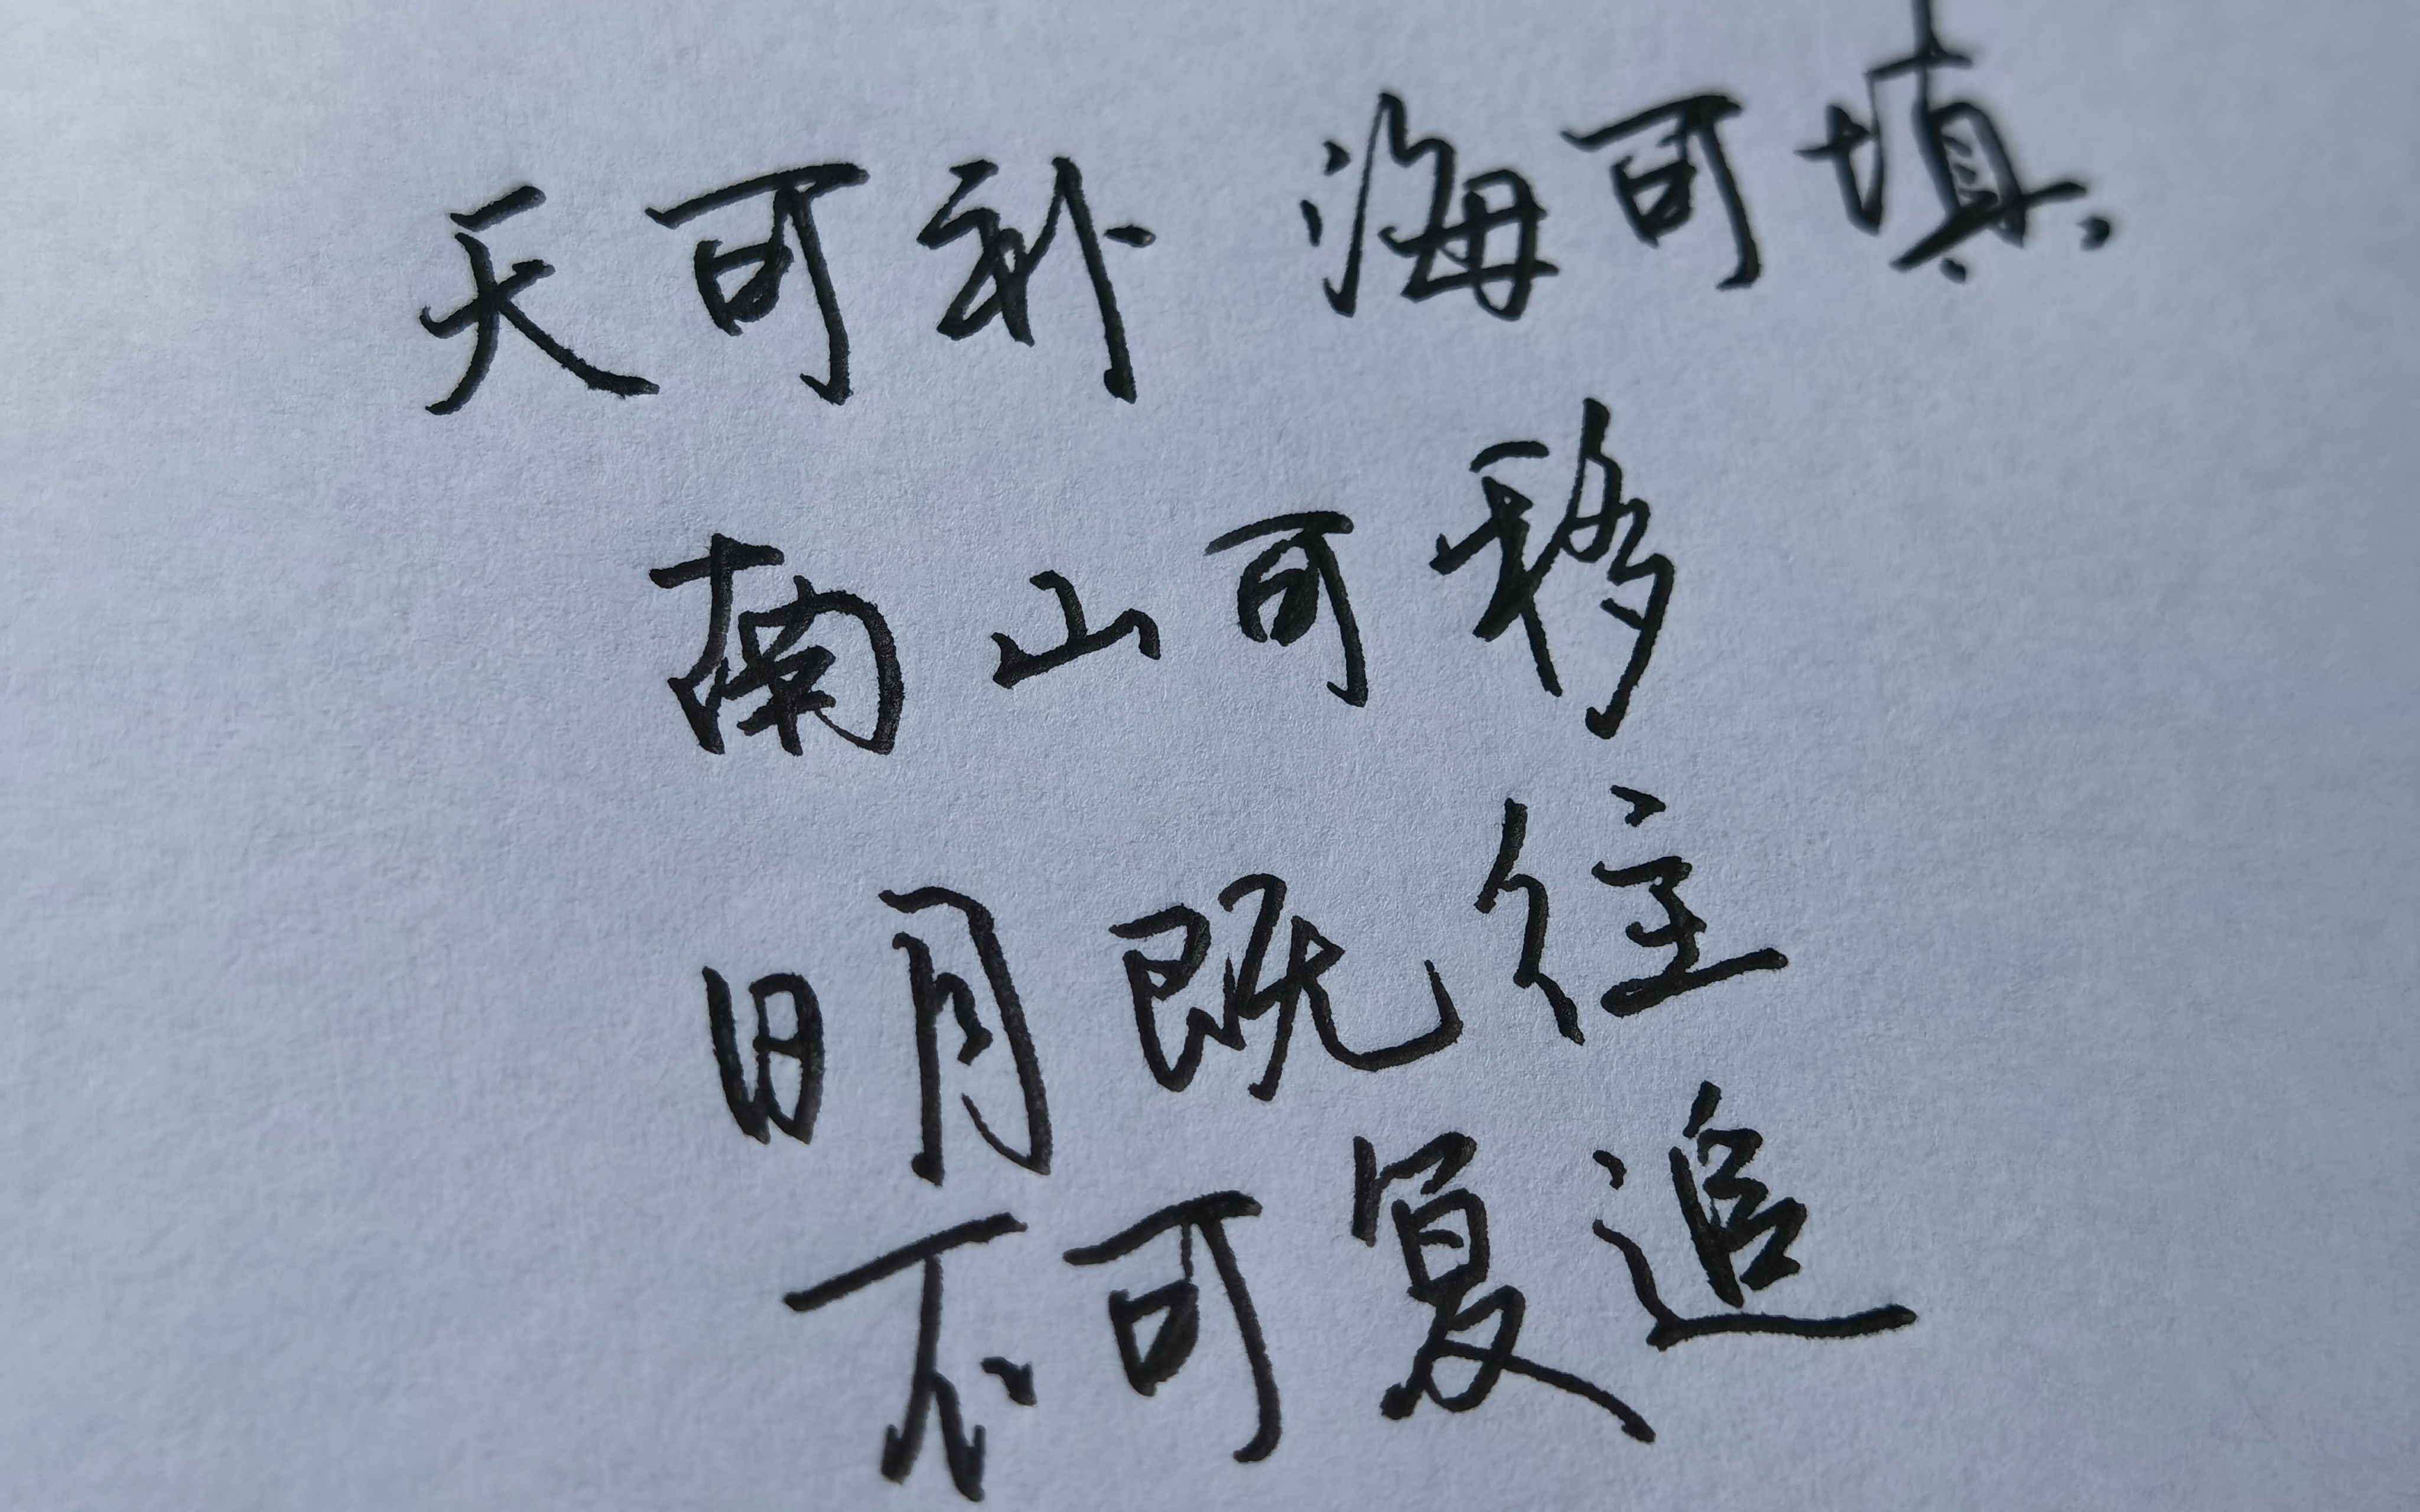 天可补 海可填
南山可移
日月既往
不可复追